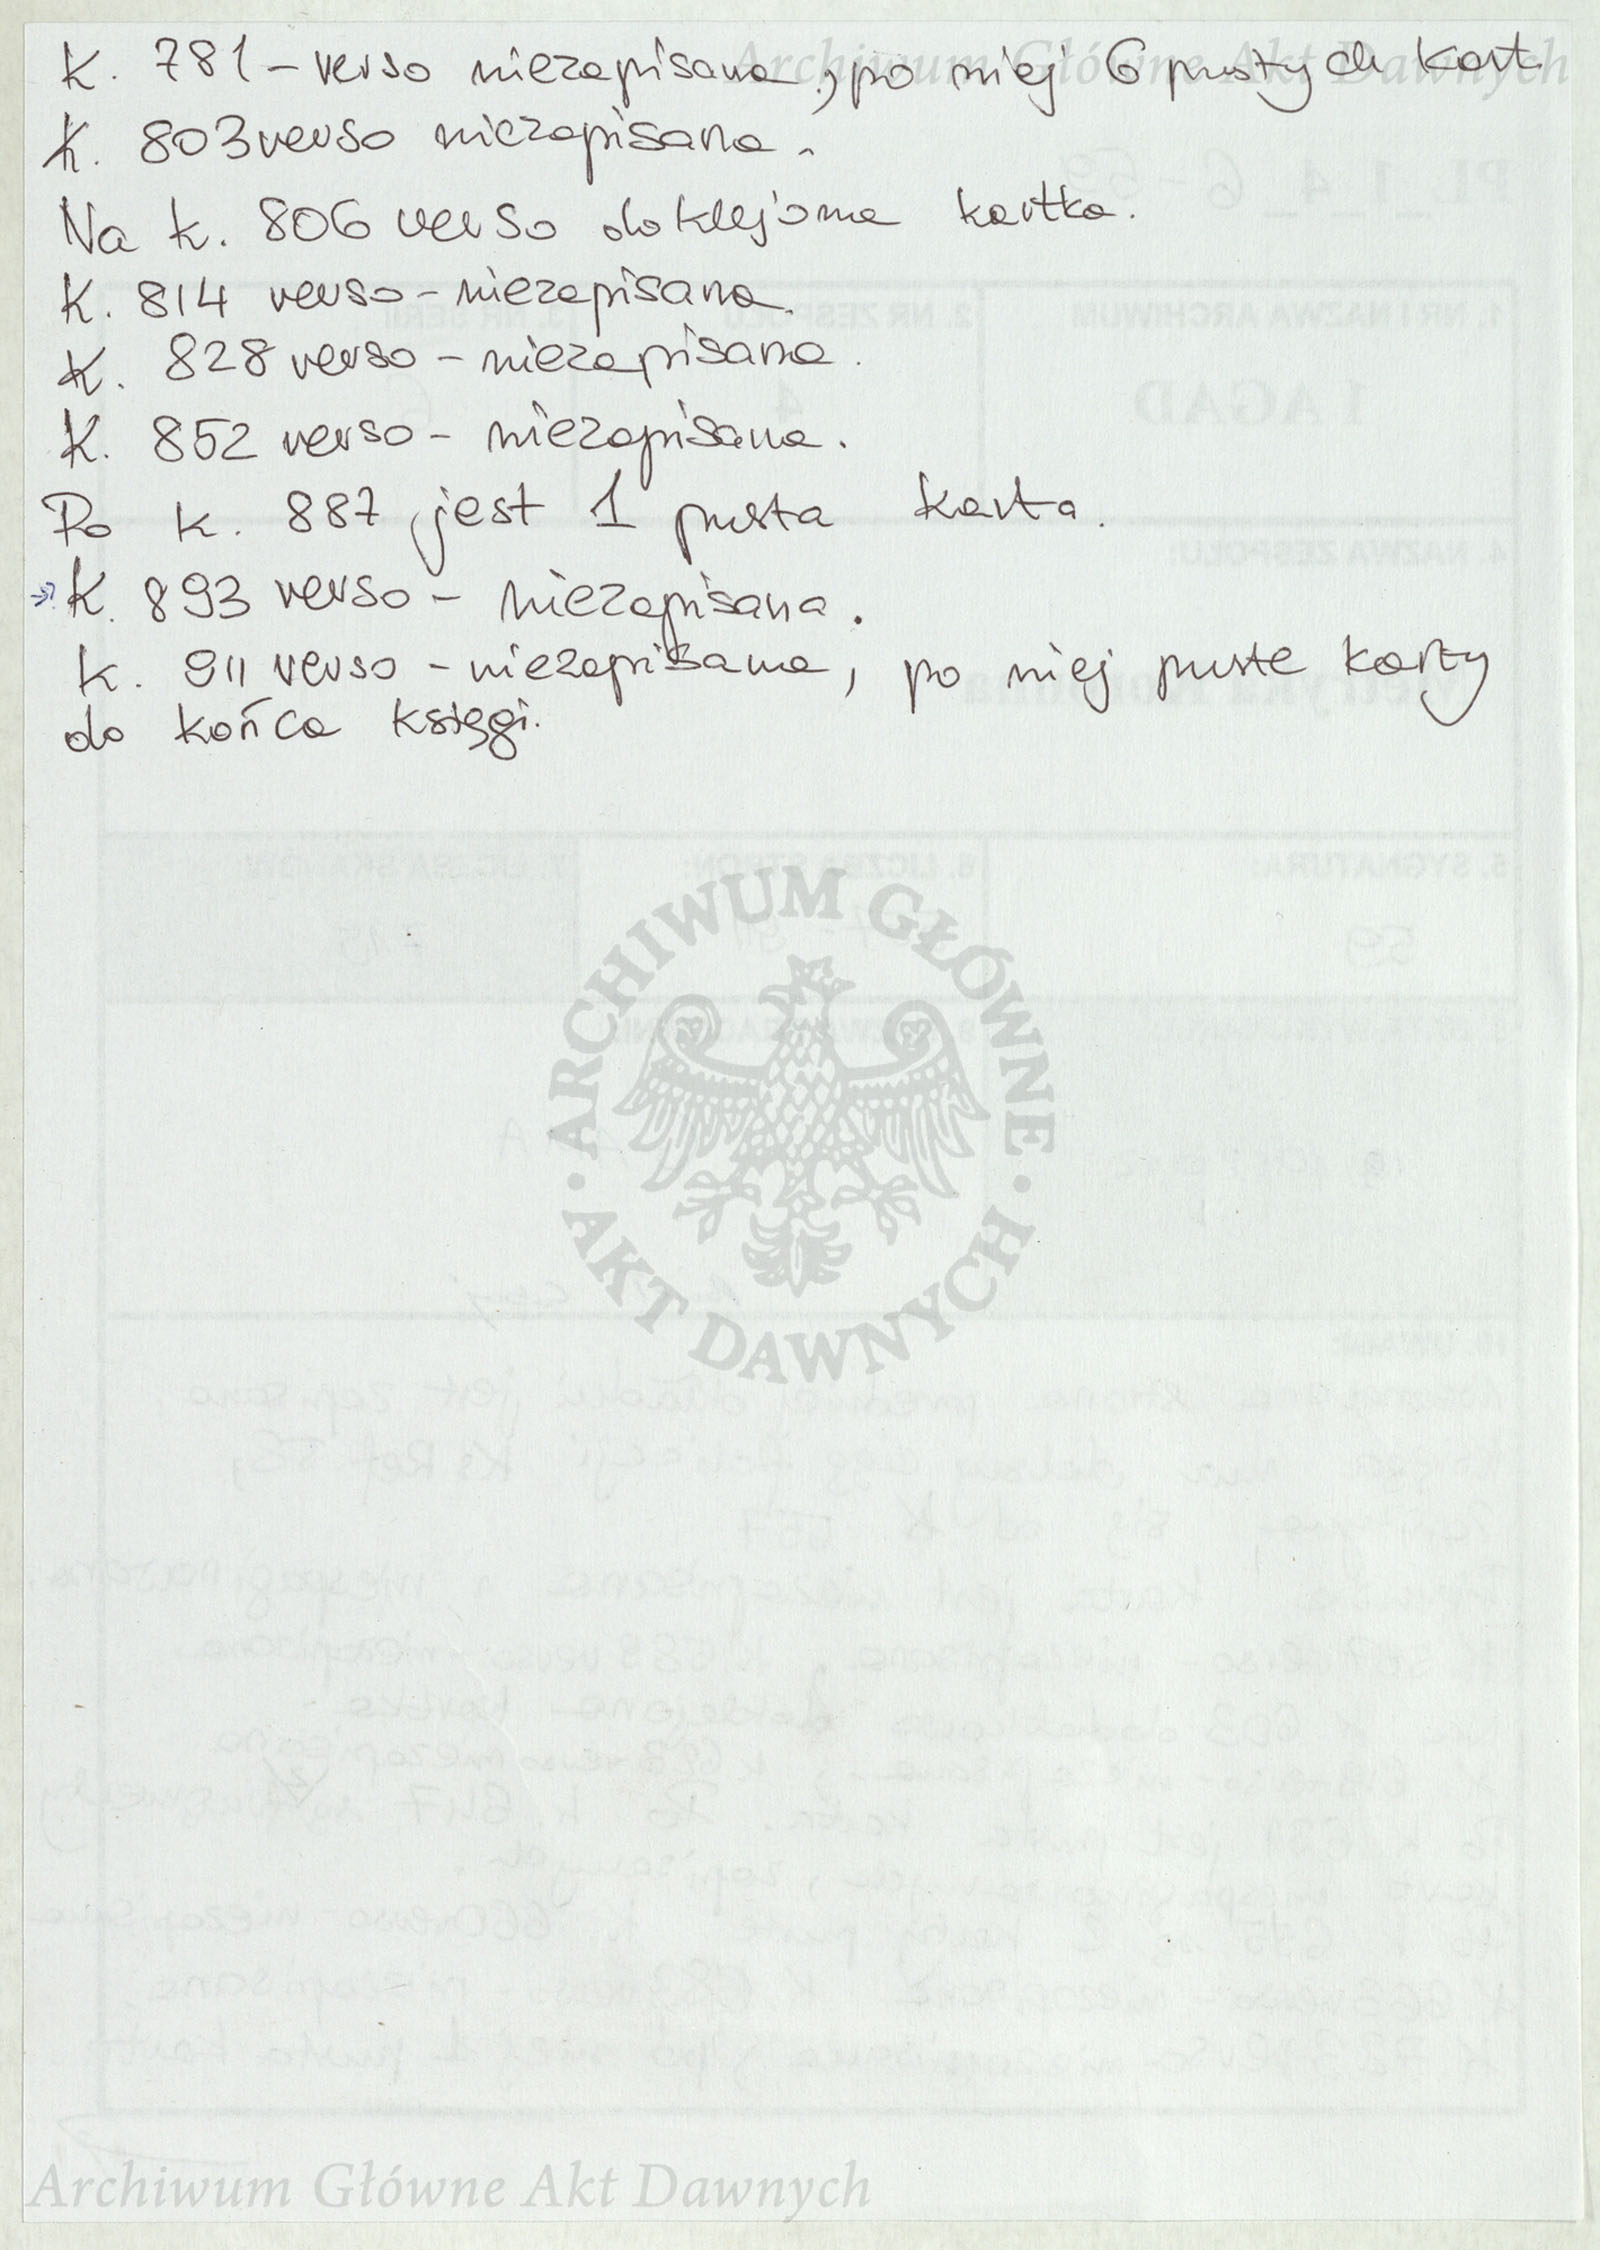 Archiwum Główne Akt Dawnych
K. 781 - verso niezapisana, po niej 6 pustych kart.
K. 803 verso niezapisana.
Na k. 806 verso doklejona kartka.
K. 814 verso - niezapisana.
K. 828 verso - niezapisana.
K. 852 verso - niezapisana.
Po k. 887 jest 1 pusta karta.
K. 893 verso - niezapisana.
K. 911 verso - niezapisana, po niej puste karty
do końca księgi.
ARCHIWUM GŁÓWNE
AKT DAWNYCH
Archiwum Główne Akt Dawnych